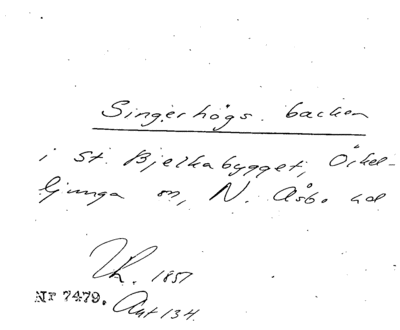 Singerhögs backen
i St. Bjelkabygget, Örkel-
ljunga sn, N. Åsbo hd
Th. 1851
Nr 7479. Ant 134.